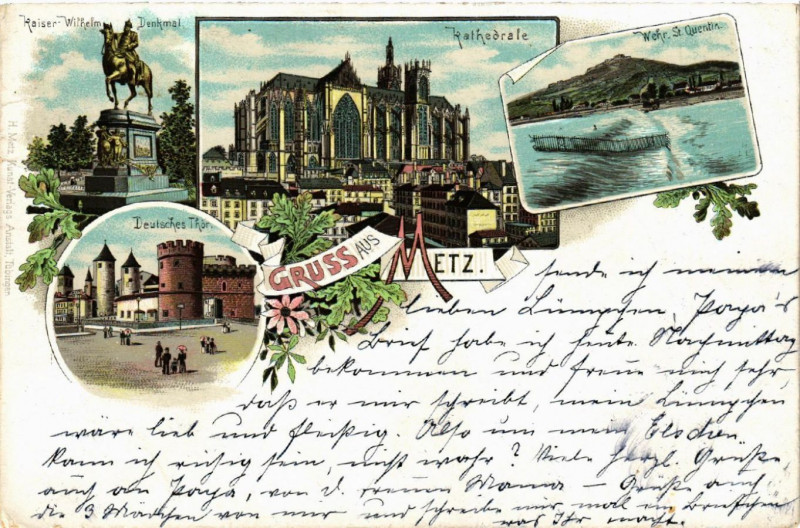 Kaiser-Wilhelm Denkmal.
Kathedrale
Wehr. St. Quentin.
H. Metz, Kunst-Verlags-Anstalt, Tübingen.
Deutsches Thor.
GRUSS AUS METZ.
sende ich meinen
lieben Lümpchen, Papa's
Brief habe ich heute Nachmittag
bekommen und freue mich sehr,
daß er mir schreibt, mein Lümpchen
wäre lieb und fleißig. Also um mein
kann ich ruhig sein, nicht wahr? Viele herzl. Grüße
auch an Papa, von d. treuen Mama – Grüße auch
die 3 Mädchen von mir und schreibe mir mal ein Briefchen
was Ihr macht.